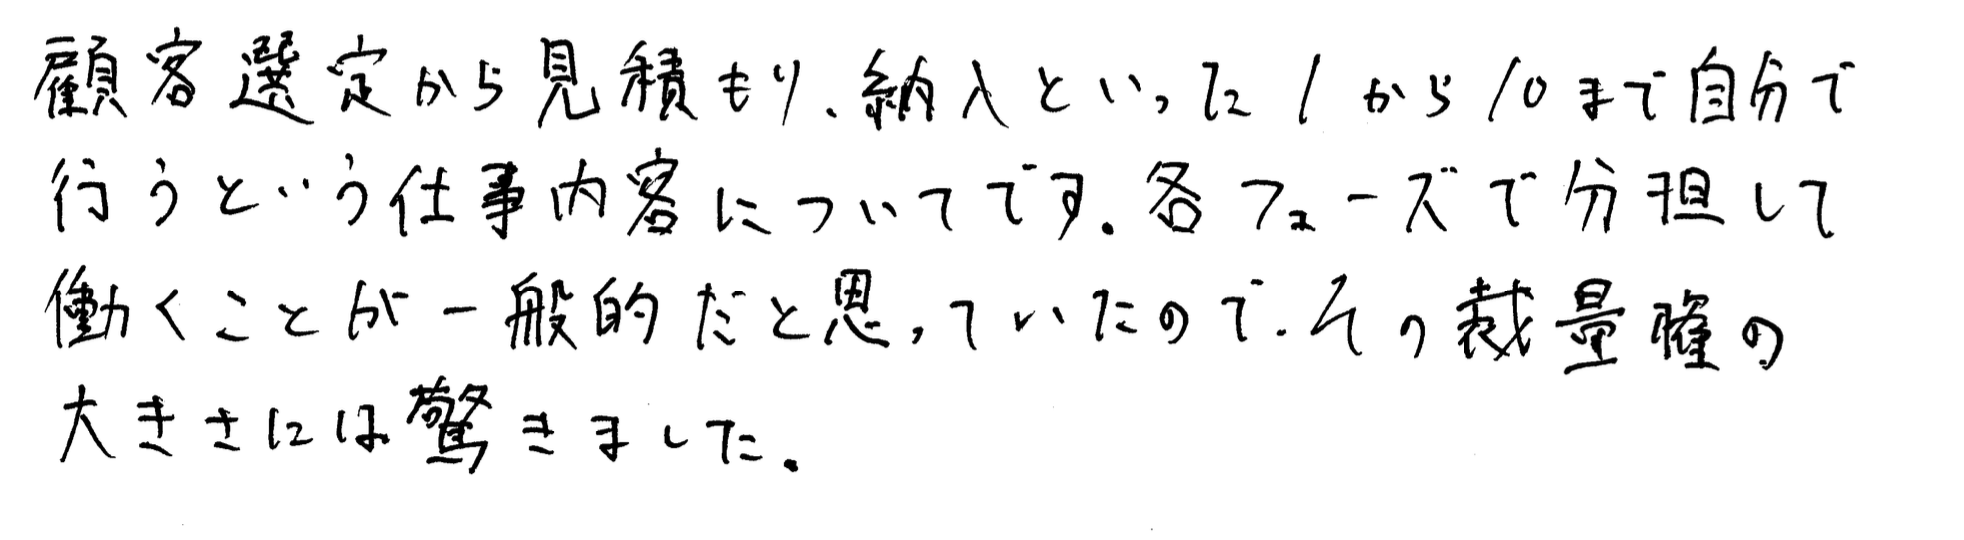 顧客選定から見積もり、納入といった1から10まで自分で
行うという仕事内容についてです。各フェーズで分担して
働くことが一般的だと思っていたので、その裁量権の
大きさには驚きました。